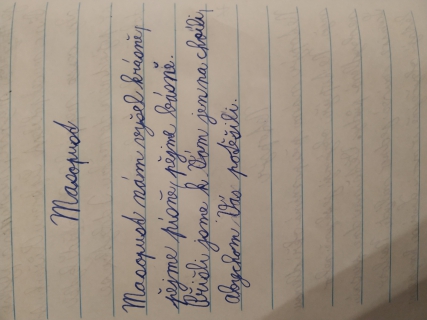 Masopust
Masopust nám vyšel krásně,
pějme písně, pějme básně.
Přišli jsme k Vám jen na chvíli,
abychom Vás potěšili.